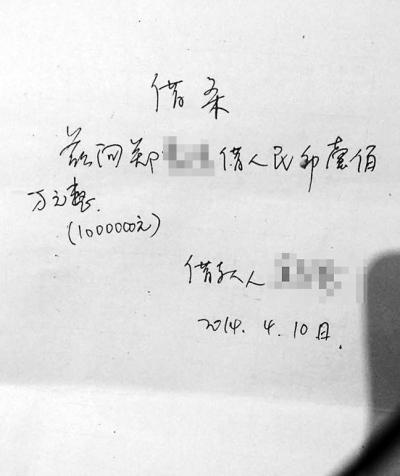 借条
兹向郑借人民币壹佰
万元整.
(1000000元)
借款人
2014.4.10日.